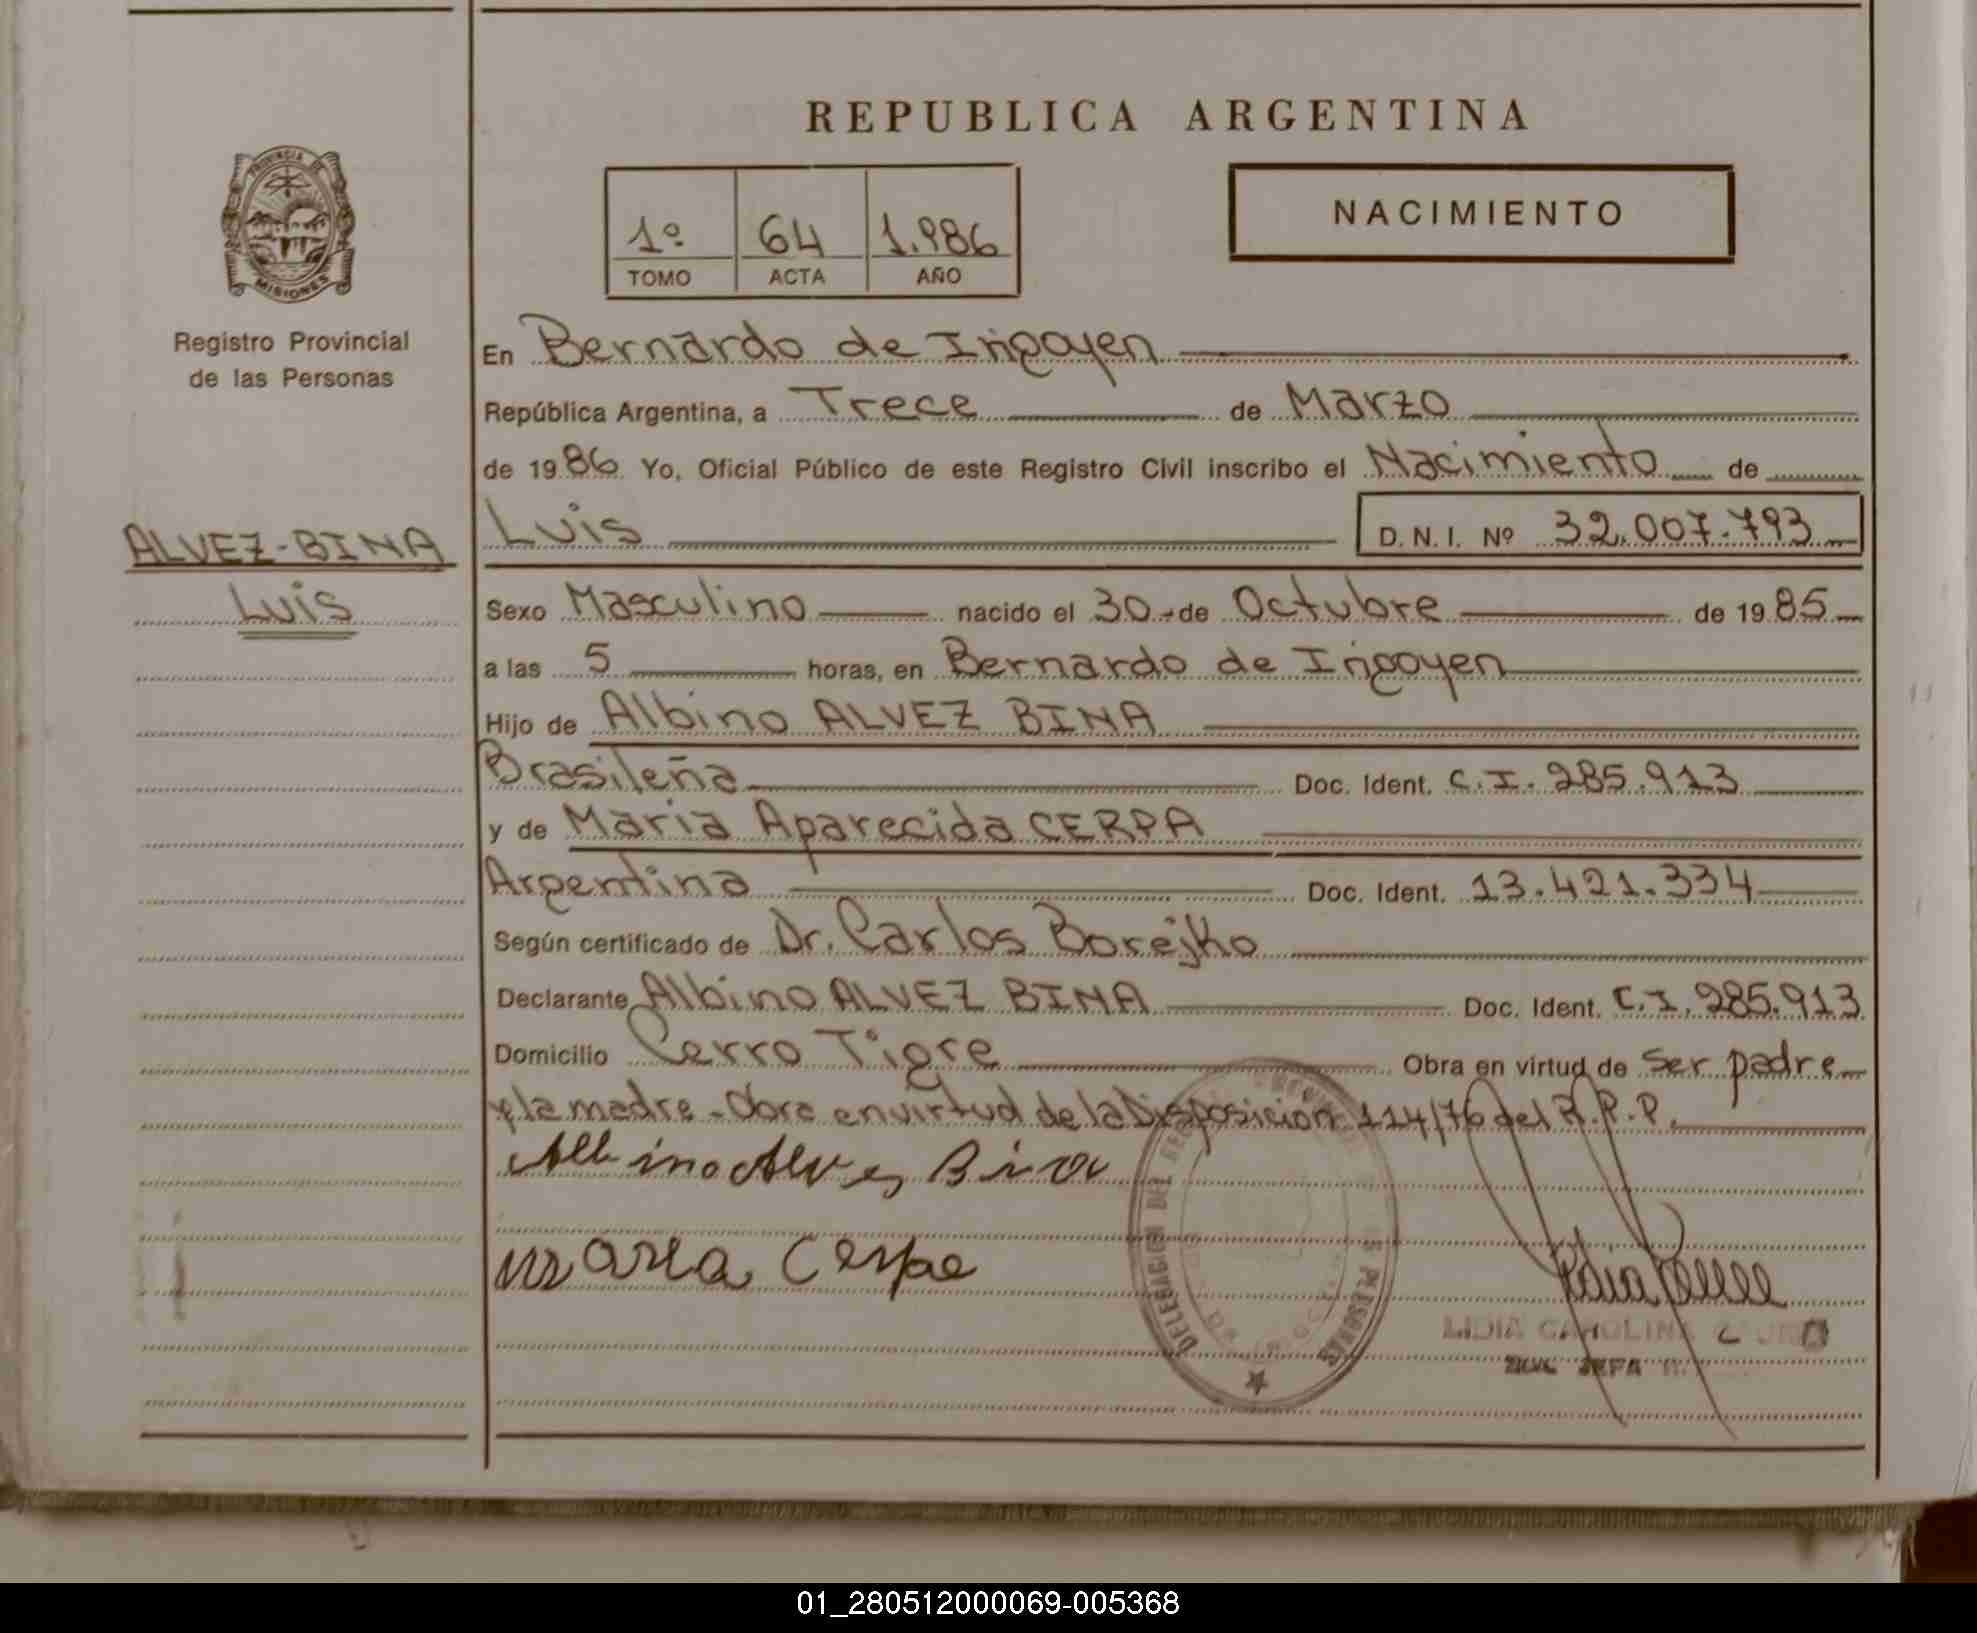 REPUBLICA ARGENTINA
PROVINCIA DE
MISIONES
Registro Provincial
de las Personas
1º 64 1.986
TOMO ACTA AÑO
NACIMIENTO
En Bernardo de Irigoyen
República Argentina, a Trece de Marzo
de 1986 Yo, Oficial Público de este Registro Civil inscribo el Nacimiento de
ALVEZ-BINA
Luis
Luis D. N. I. Nº 32.007.793
Sexo Masculino nacido el 30 de Octubre de 1985
a las 5 horas, en Bernardo de Irigoyen
Hijo de Albino ALVEZ BINA
Brasileña Doc. Ident. C.I. 285.913
y de Maria Aparecida CERPA
Argentina Doc. Ident. 13.421.334
Según certificado de Dr. Carlos Borejko
Declarante Albino ALVEZ BINA Doc. Ident. C.I. 285.913
Domicilio Cerro Tigre Obra en virtud de ser padre
y la madre - Obra en virtud de la Disposicion 114/76 del R.P.P.
Albino Alves Bina
maria Cerpa
DELEGACION DEL
LIDIA CAROLINA
JEFA
01_280512000069-005368